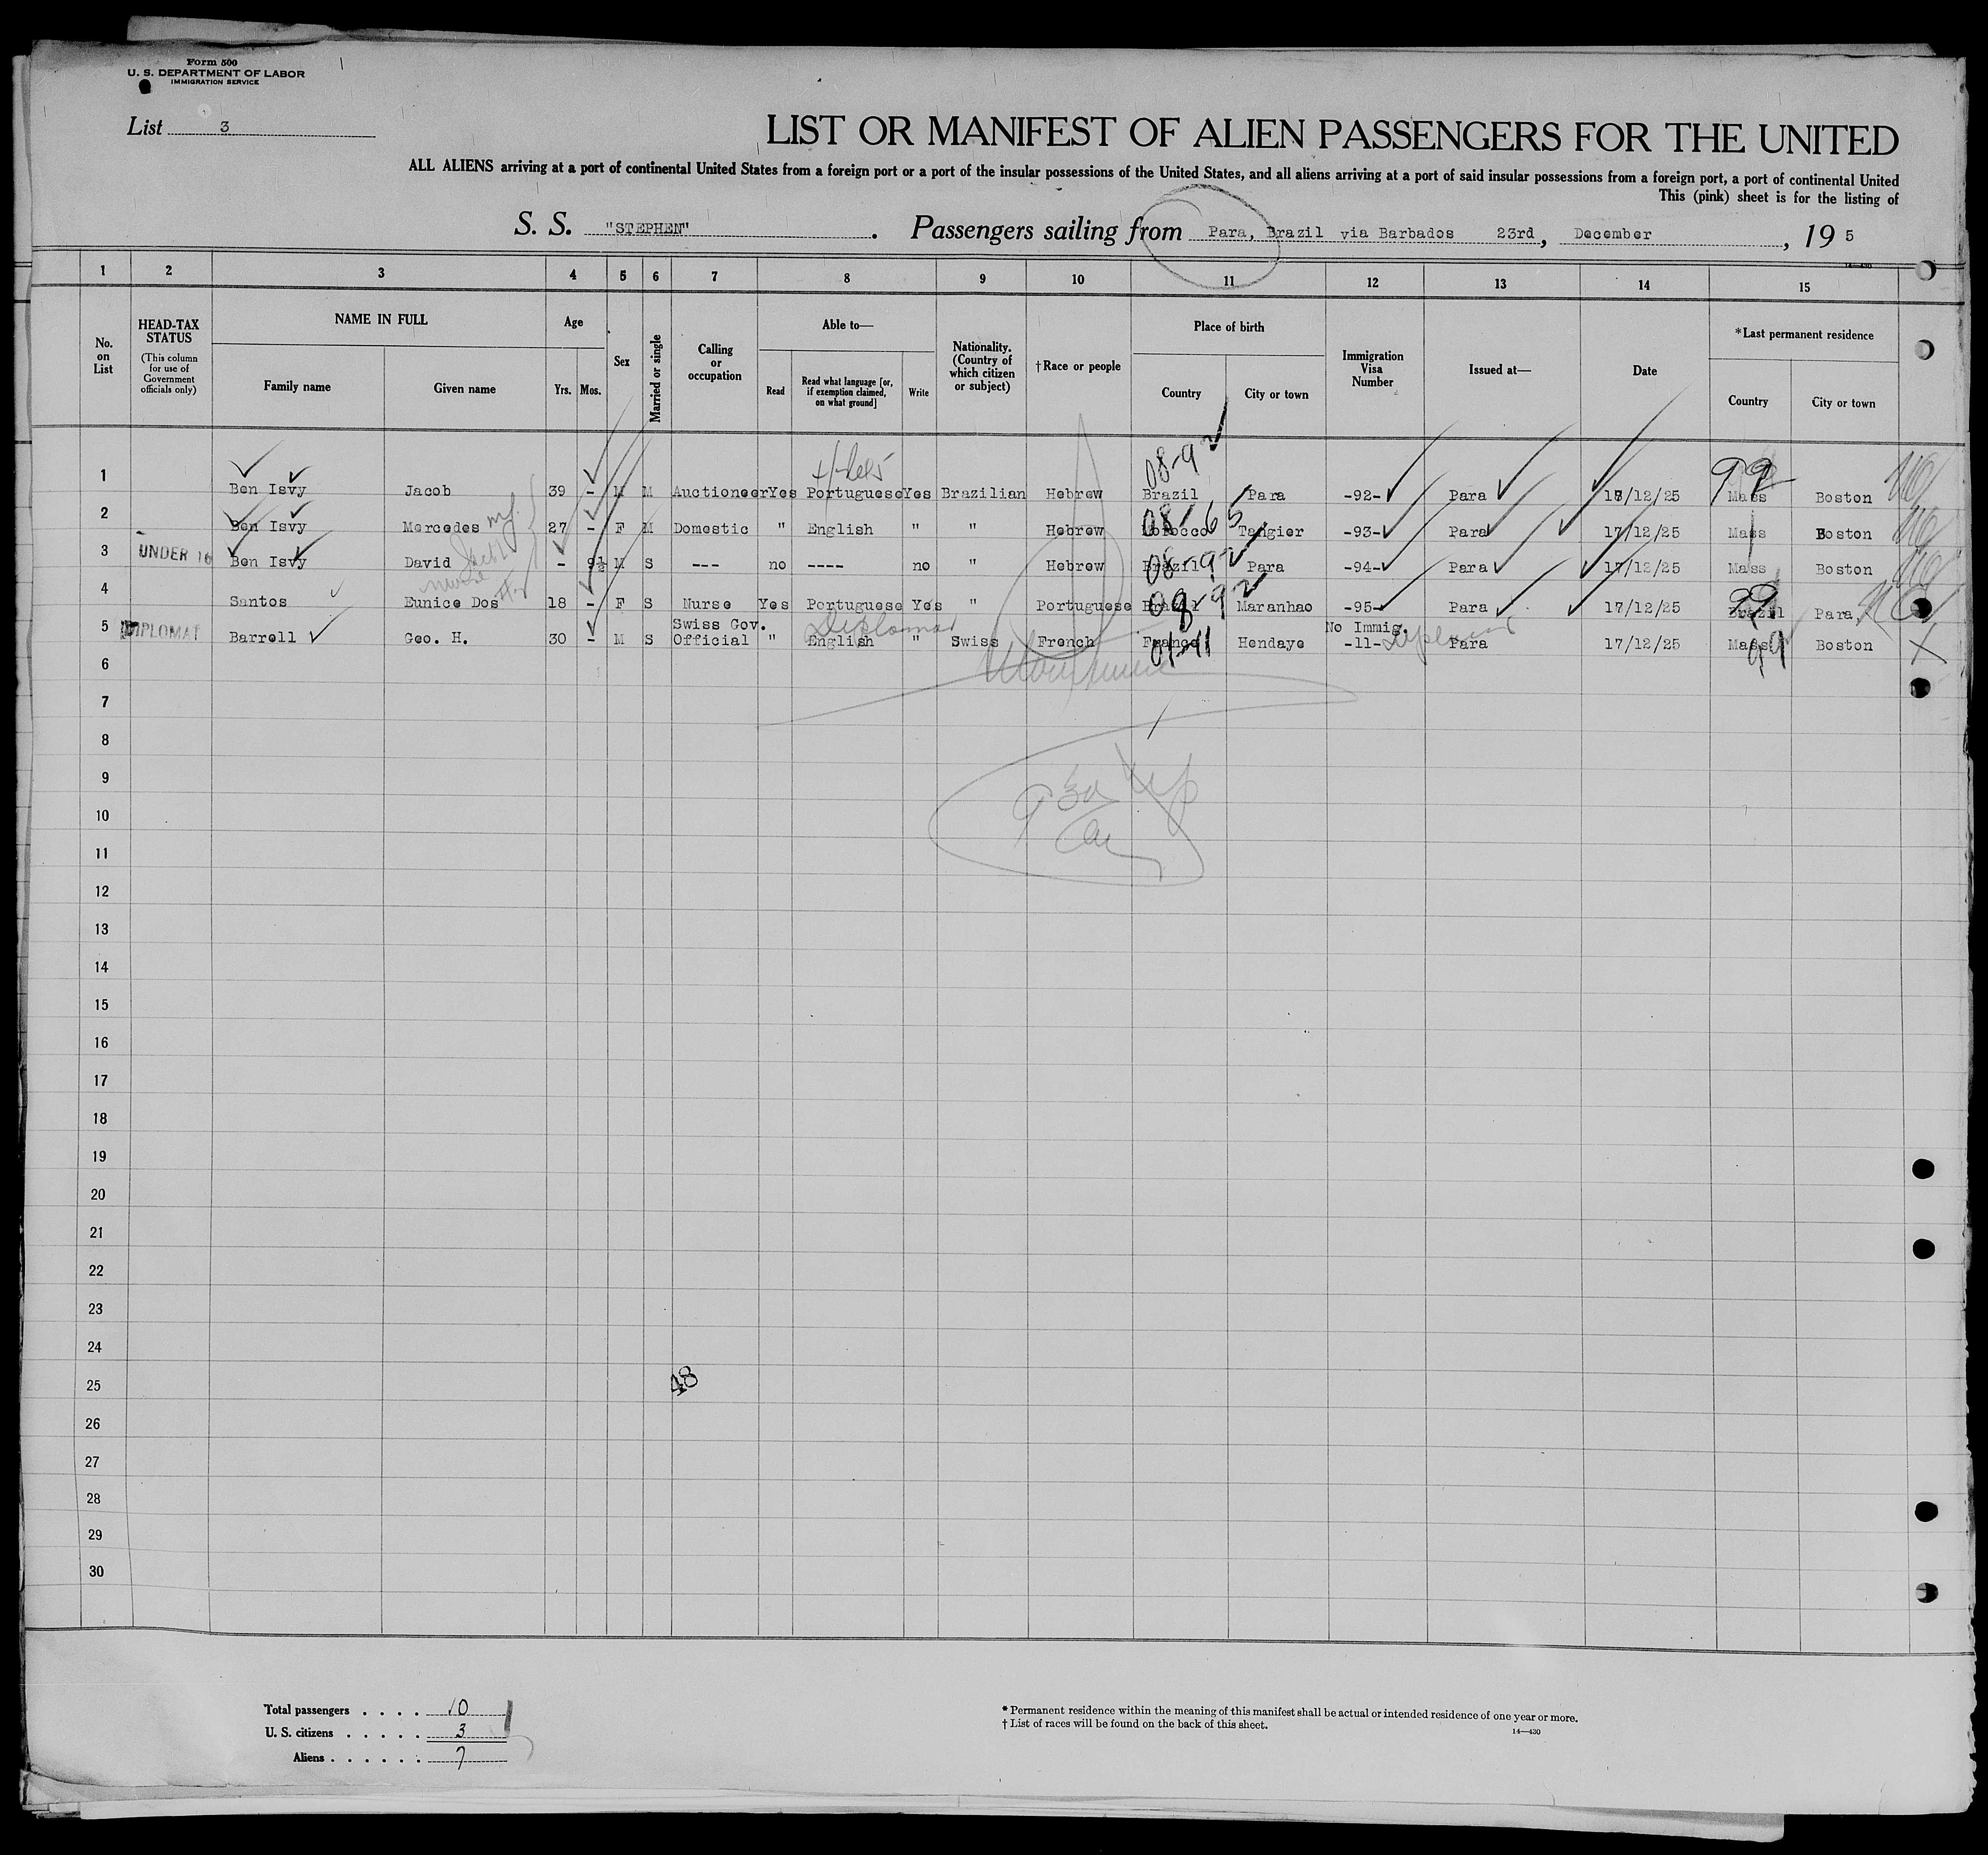 Form 500
U. S. DEPARTMENT OF LABOR
IMMIGRATION SERVICE
List 3
LIST OR MANIFEST OF ALIEN PASSENGERS FOR THE UNITED
ALL ALIENS arriving at a port of continental United States from a foreign port or a port of the insular possessions of the United States, and all aliens arriving at a port of said insular possessions from a foreign port, a port of continental United
This (pink) sheet is for the listing of
S. S. "STEPHEN" . Passengers sailing from Para, Brazil via Barbados 23rd, December , 19 5
14—430
1 2 3 4 5 6 7 8 9 10 11 12 13 14 15
No. on List
HEAD-TAX STATUS
(This column for use of Government officials only)
NAME IN FULL
Family name
Given name
Age
Yrs.
Mos.
Sex
Married or single
Calling or occupation
Able to—
Read
Read what language [or, if exemption claimed, on what ground]
Write
Nationality. (Country of which citizen or subject)
†Race or people
Place of birth
Country
City or town
Immigration Visa Number
Issued at—
Date
*Last permanent residence
Country
City or town
08-92 99
1 Ben Isvy Jacob 39 - M M Auctioneer Yes Portuguese Yes Brazilian Hebrew Brazil Para -92- Para 18/12/25 Mass Boston
08-65
2 Ben Isvy Mercedes 27 - F M Domestic " English " " Hebrew Morocco Tangier -93- Para 17/12/25 Mass Boston
08-92
3 UNDER 16 Ben Isvy David - 9½ M S --- no ---- no " Hebrew Brazil Para -94- Para 17/12/25 Mass Boston
nurse
08-92 99
4 Santos Eunice Dos 18 - F S Nurse Yes Portuguese Yes " Portuguese Brazil Maranhao -95- Para 17/12/25 Brazil Para
Swiss Gov. Diplomat No Immig. Diplomat
5 DIPLOMAT Barrell Geo. H. 30 - M S Official " English " Swiss French France Hendaye -11- Para 17/12/25 Mass Boston
01-11 99
6
7
8
9
10
11
12
13
14
15
16
17
18
19
20
21
22
23
24
48
25
26
27
28
29
30
Total passengers . . . . 10
U. S. citizens . . . . . 3
Aliens . . . . . . 7
* Permanent residence within the meaning of this manifest shall be actual or intended residence of one year or more.
† List of races will be found on the back of this sheet.
14—430